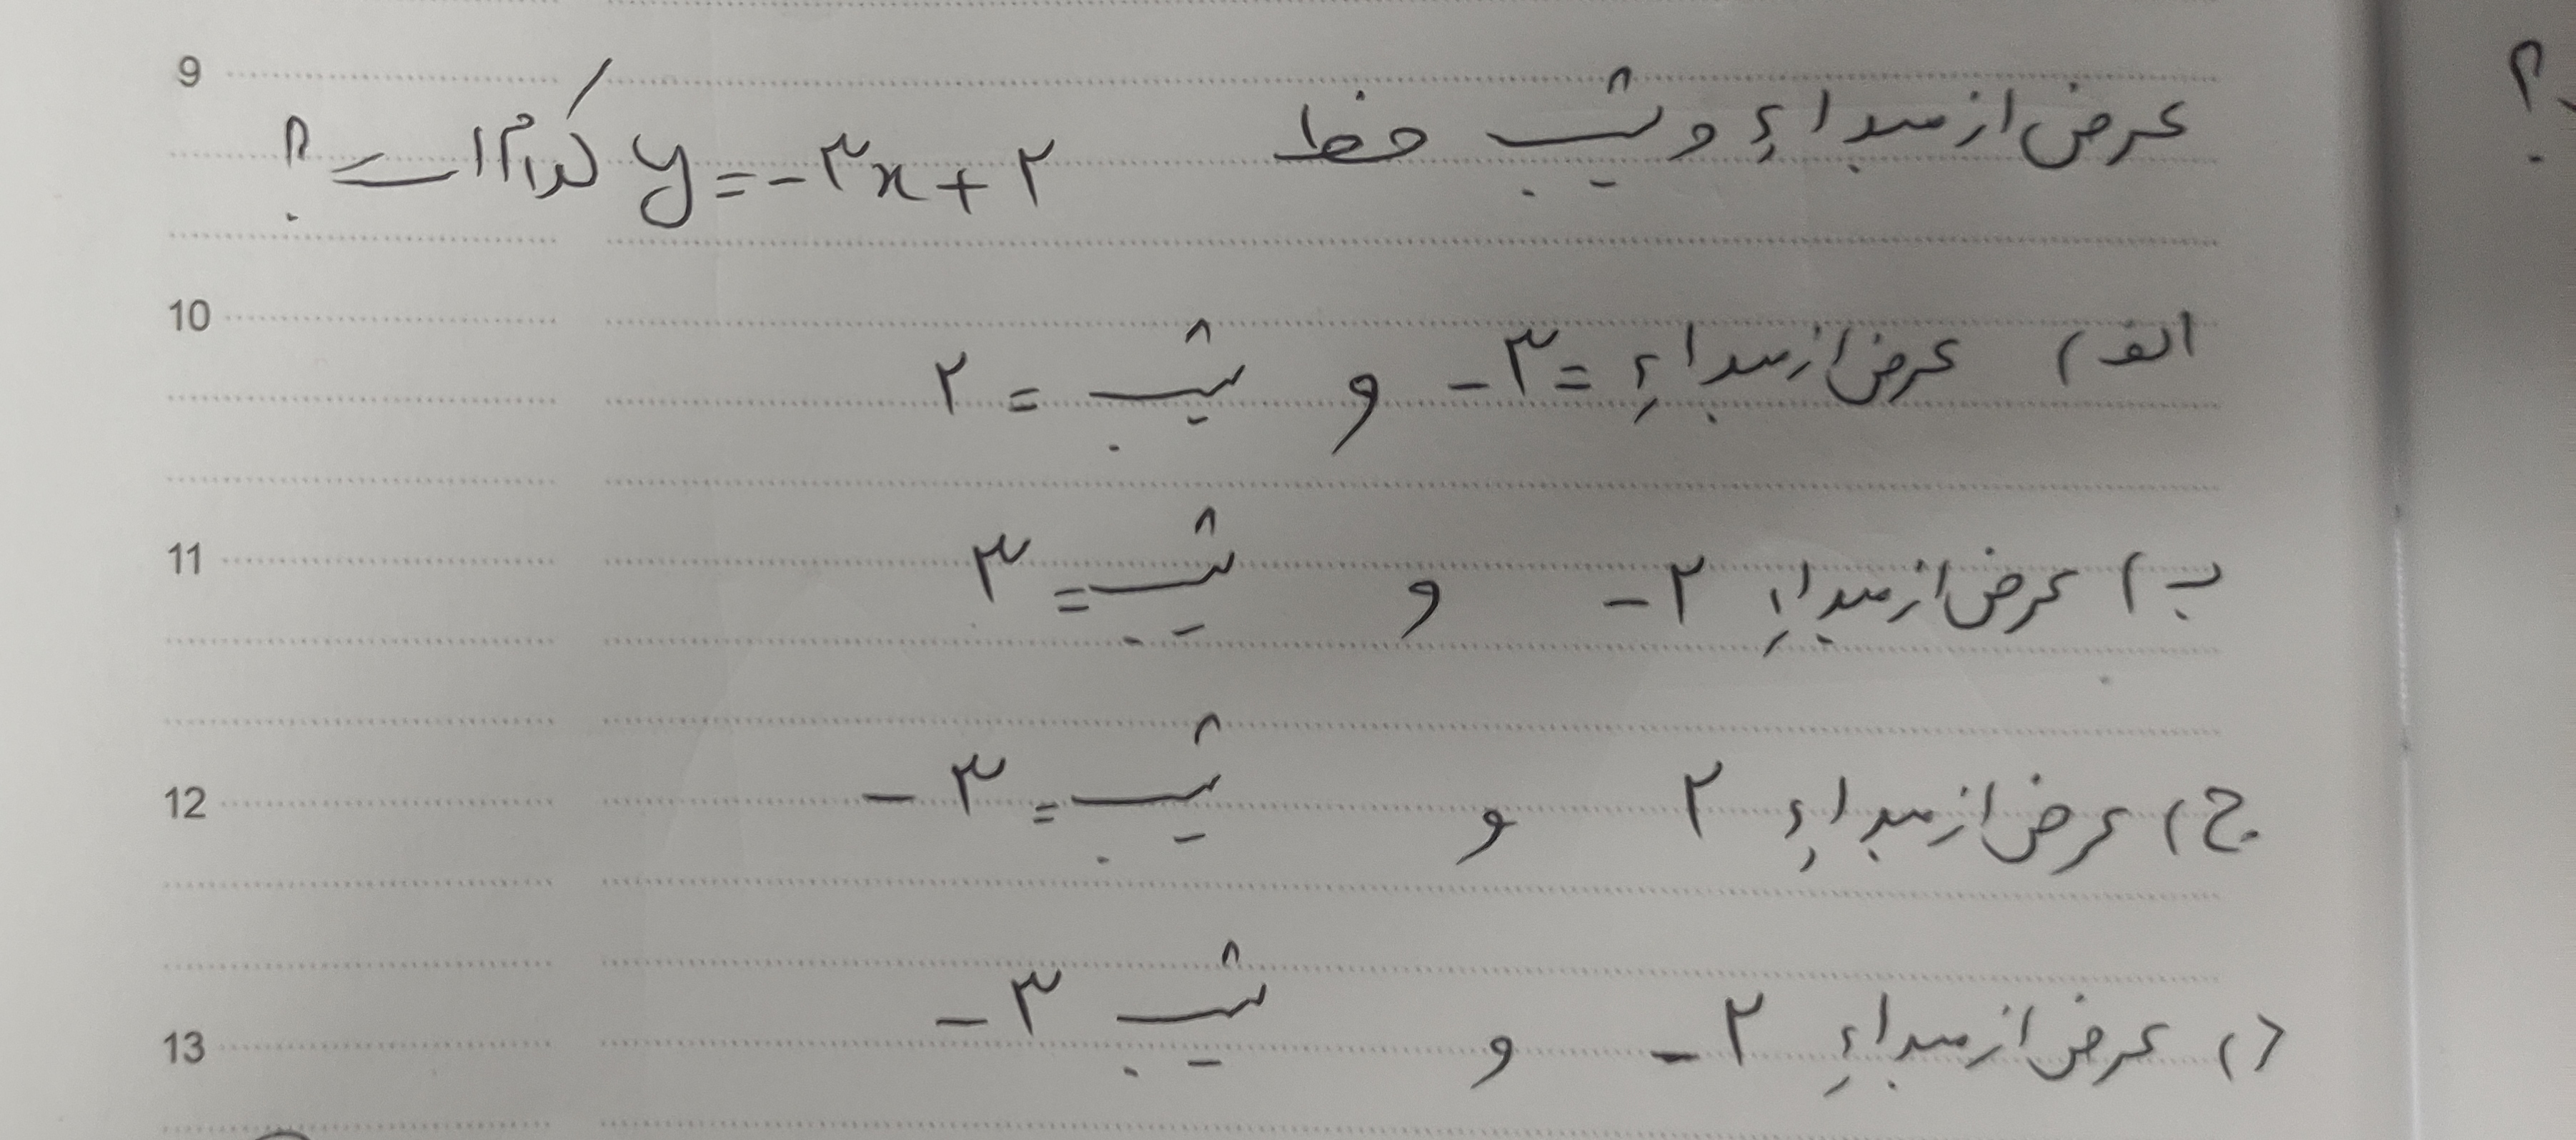 9
عرض از مبداء و شیب خط y = -۳x + ۲ کدام است؟
10
الف) عرض از مبداء = ۳- و شیب = ۲
11
ب) عرض از مبداء ۲- و شیب = ۳
12
ج) عرض از مبداء ۲ و شیب = ۳-
13
د) عرض از مبداء ۲- و شیب ۳-
؟